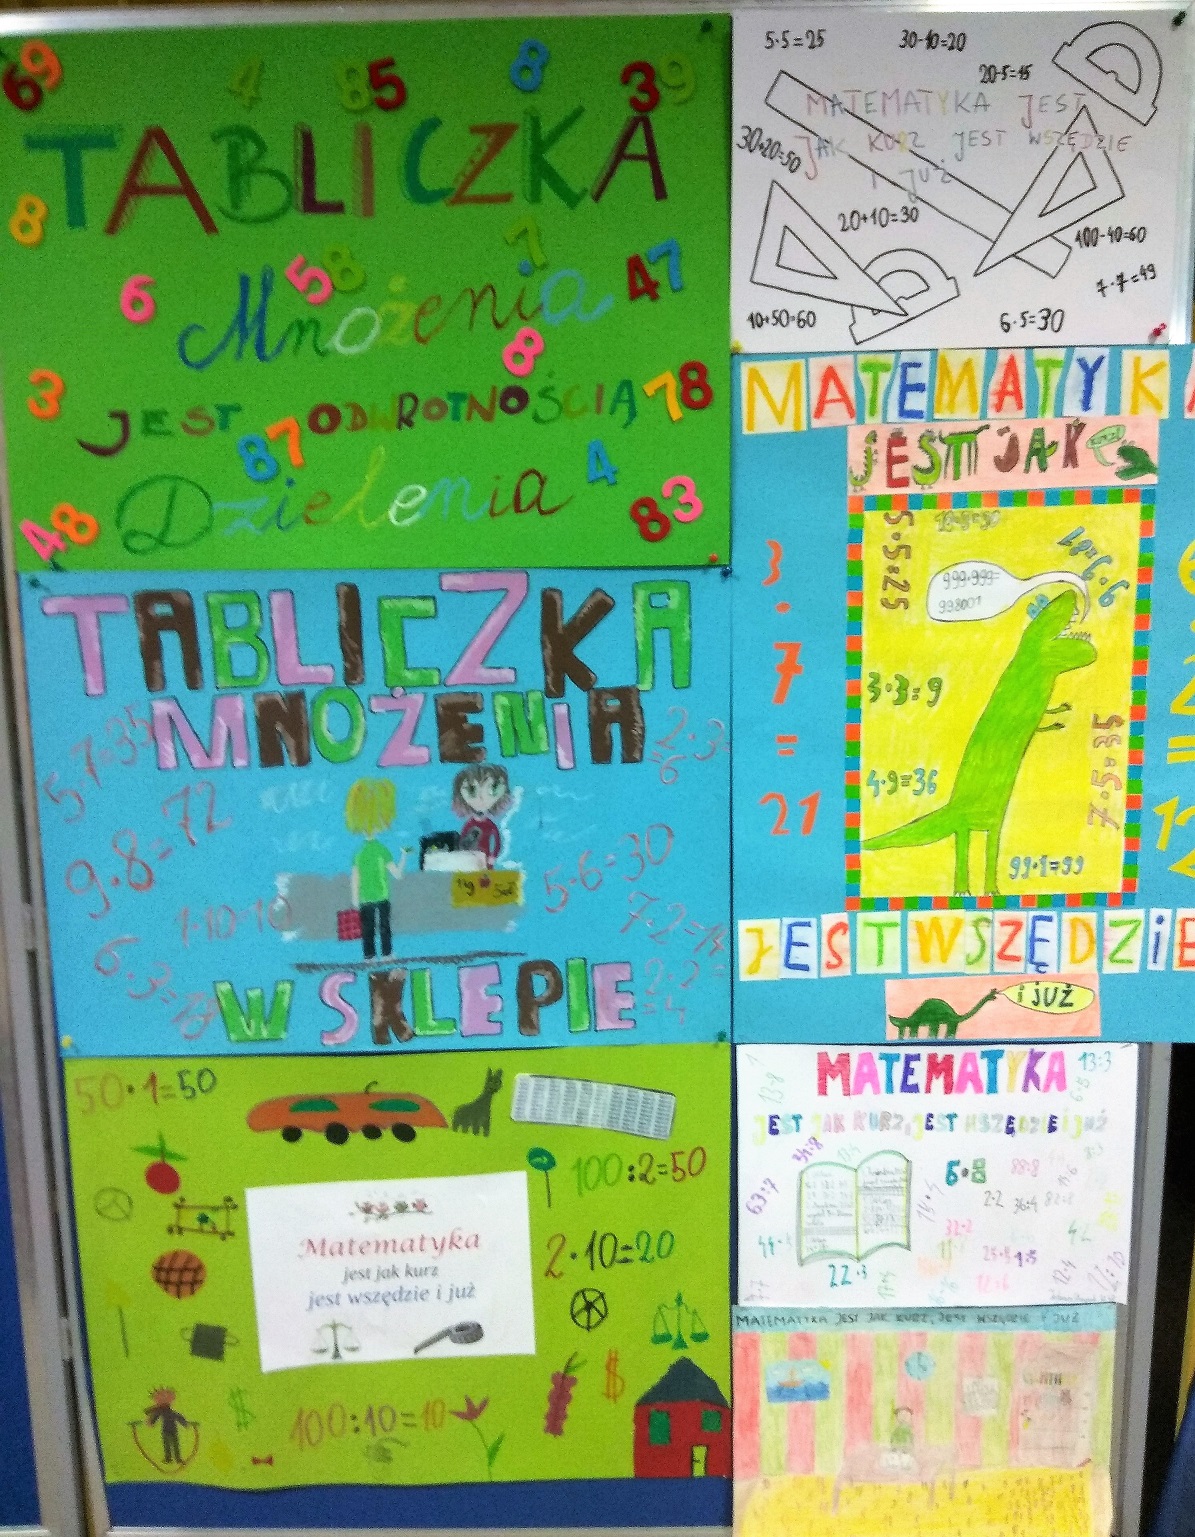 69
4
85
8
39
TABLICZKA
8
7
6
58
47
Mnożenia
8
3
78
JEST ODWROTNOŚCIĄ
87
4
Dzielenia
48
83
TABLICZKA
MNOŻENIA
5·7=35
2·3=
=6
9·8=72
5·6=30
1kg
5zł
1·10=10
7·2=14
6·3=18
2·2=
=4
W SKLEPIE
50·1=50
100:2=50
Matematyka
jest jak kurz
jest wszędzie i już
2·10=20
$
$
100:10=10
5·5=25
30-10=20
20-5=15
MATEMATYKA JEST
JAK KURZ JEST WSZĘDZIE
I JUŻ
30+20=50
20+10=30
100-40=60
7·7=49
10+50=60
6·5=30
MATEMATYKA
JEST JAK
KURZ
3·7=21
5·5=25
999·999=
998001
3·3=9
4·9=36
7·5=35
99·1=99
JEST WSZĘDZIE
i JUŻ
MATEMATYKA
13:3
JEST JAK KURZ, JEST WSZĘDZIE i JUŻ
34:8
63:7
6·8
88:8
2·2
36:4
22·3
42
MATEMATYKA JEST JAK KURZ, JEST WSZĘDZIE I JUŻ